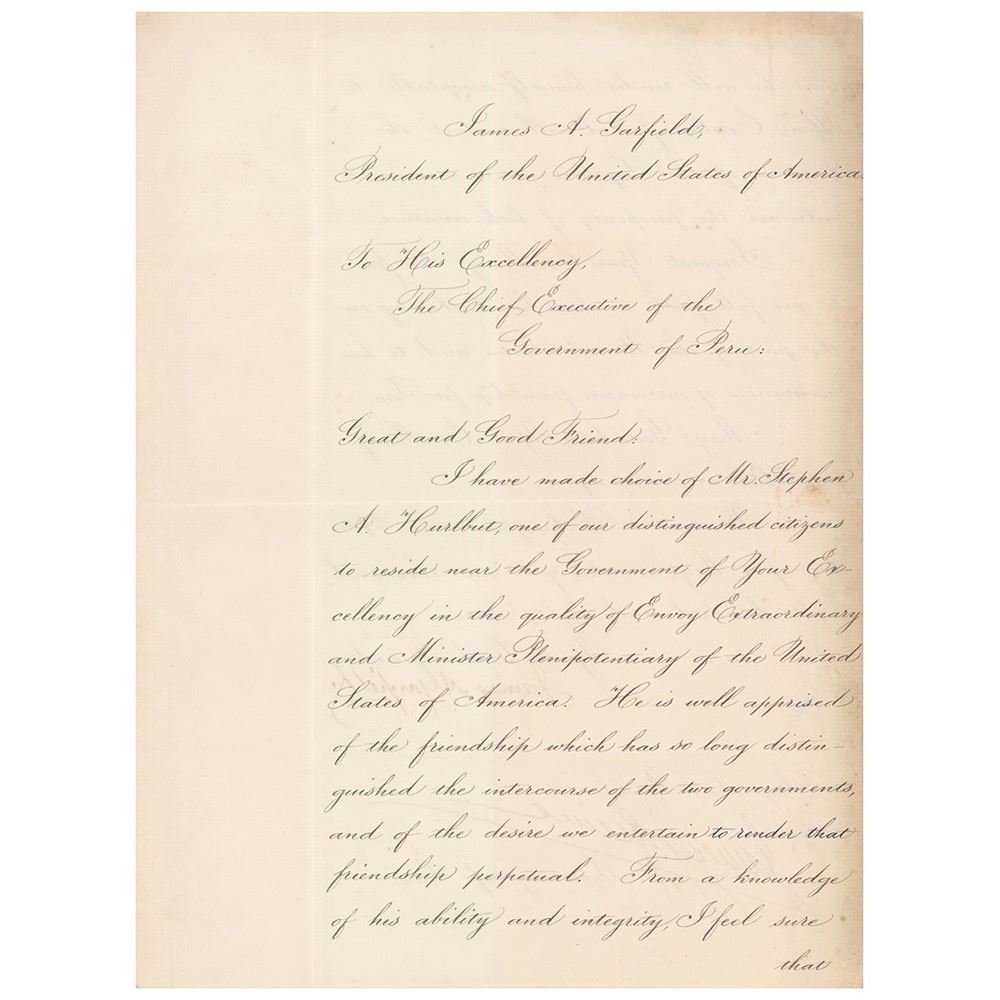 James A. Garfield,
President of the United States of America
To His Excellency,
The Chief Executive of the
Government of Peru:
Great and Good Friend:
I have made choice of Mr. Stephen
A. Hurlbut, one of our distinguished citizens
to reside near the Government of Your Ex-
cellency in the quality of Envoy Extraordinary
and Minister Plenipotentiary of the United
States of America. He is well apprised
of the friendship which has so long distin-
guished the intercourse of the two governments,
and of the desire we entertain to render that
friendship perpetual. From a knowledge
of his ability and integrity, I feel sure
that